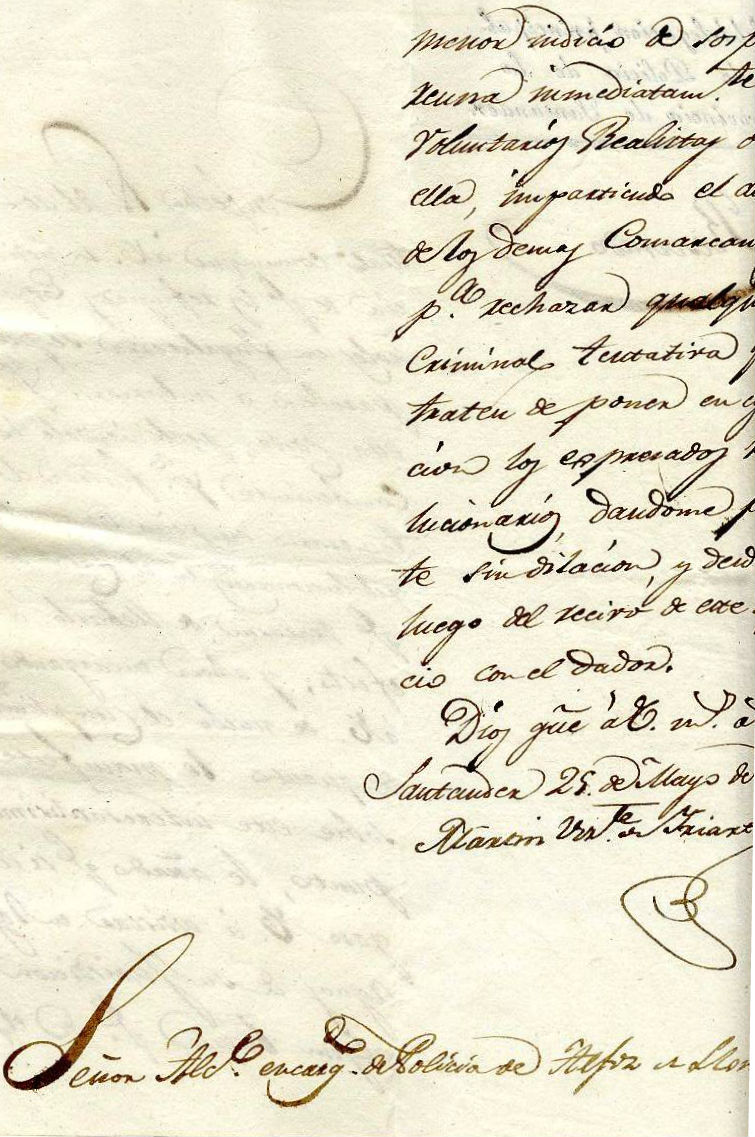 menor indicio de sosp
reuna inmediatam.te
Voluntarios Realistas
ella, impartiendo el
de los demas Comarcan
p.a rechazar qualqu
Criminal tentativa
traten de poner en
cion los espresados
lucionarios, dandome p
te sin dilacion, y desd
luego del recivo de este
cio con el dador.
Dios gue á V. m.s a
Santander 25. de Mayo de
Martin Vn.te de Iriart
Señor Alc.e encarg.do de Policia de Alfoz de Llor